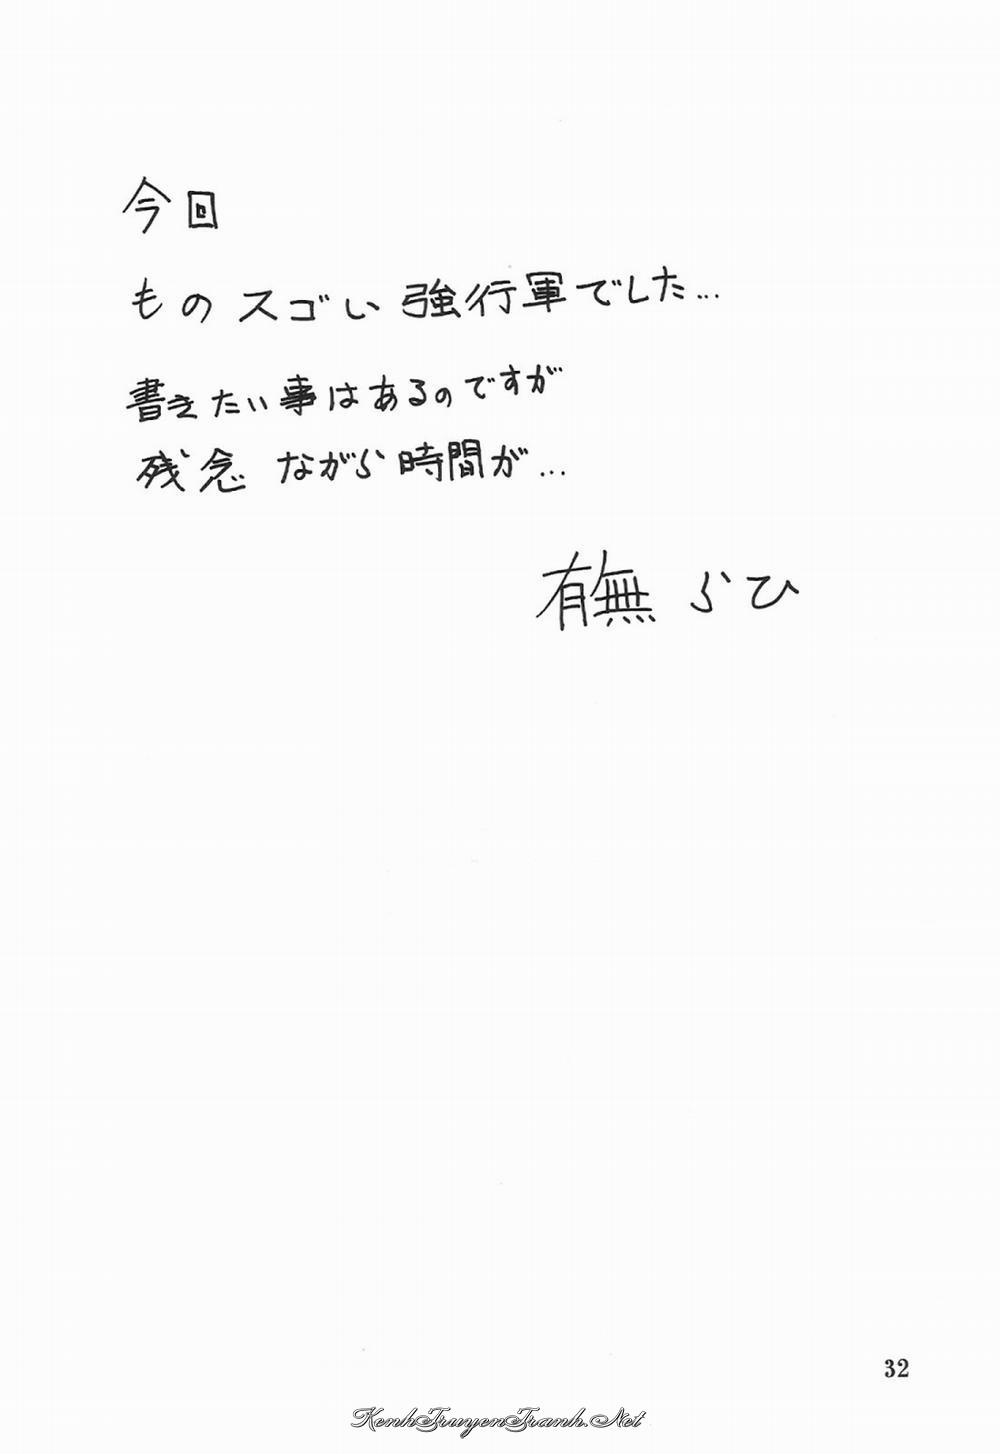 今回
ものスゴい強行軍でした…
書きたい事はあるのですが
残念ながら時間が…
有無らひ
32
KenhTruyenTranh.Net